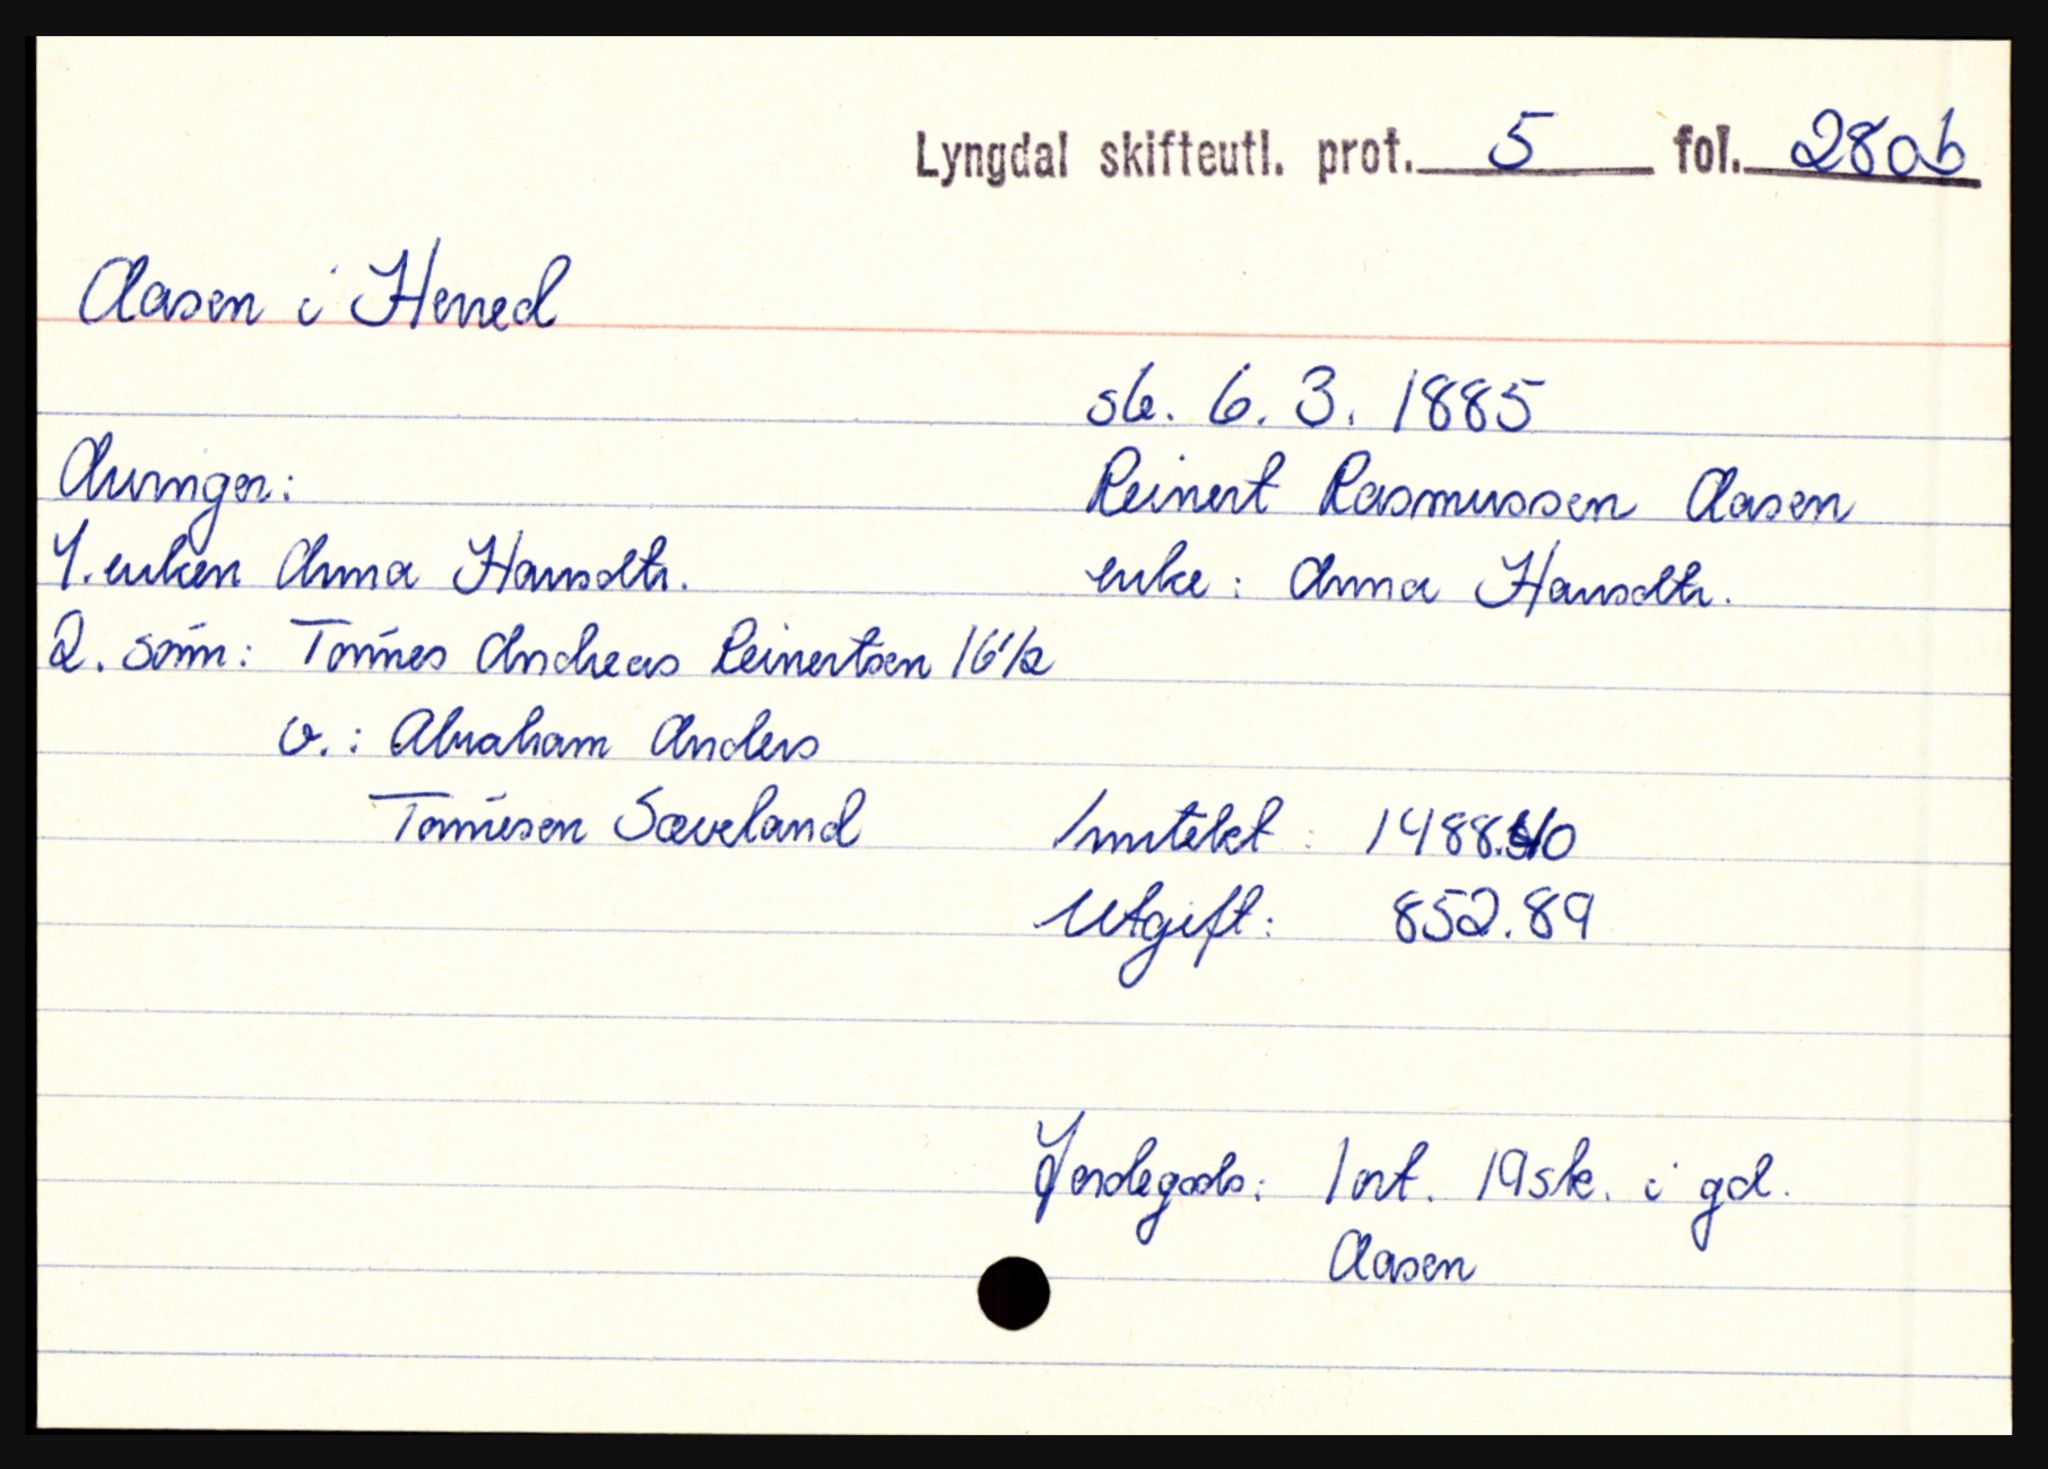 Lyngdal skifteutl. prot. 5 fol. 280b
Aasen i Herred
sk. 6. 3. 1885
Arvinger:
Reinert Rasmussen Aasen
1. enken Anna Hansdtr.
enke: Anna Hansdtr.
2. sönn: Tönnes Andreas Reinertsen 16 1/2
v.: Abraham Anders
Tönnesen Sæveland
Inntekt: 1488.40
Utgift: 852.89
Jordegods: 1 ort. 19 sk. i gd.
Aasen